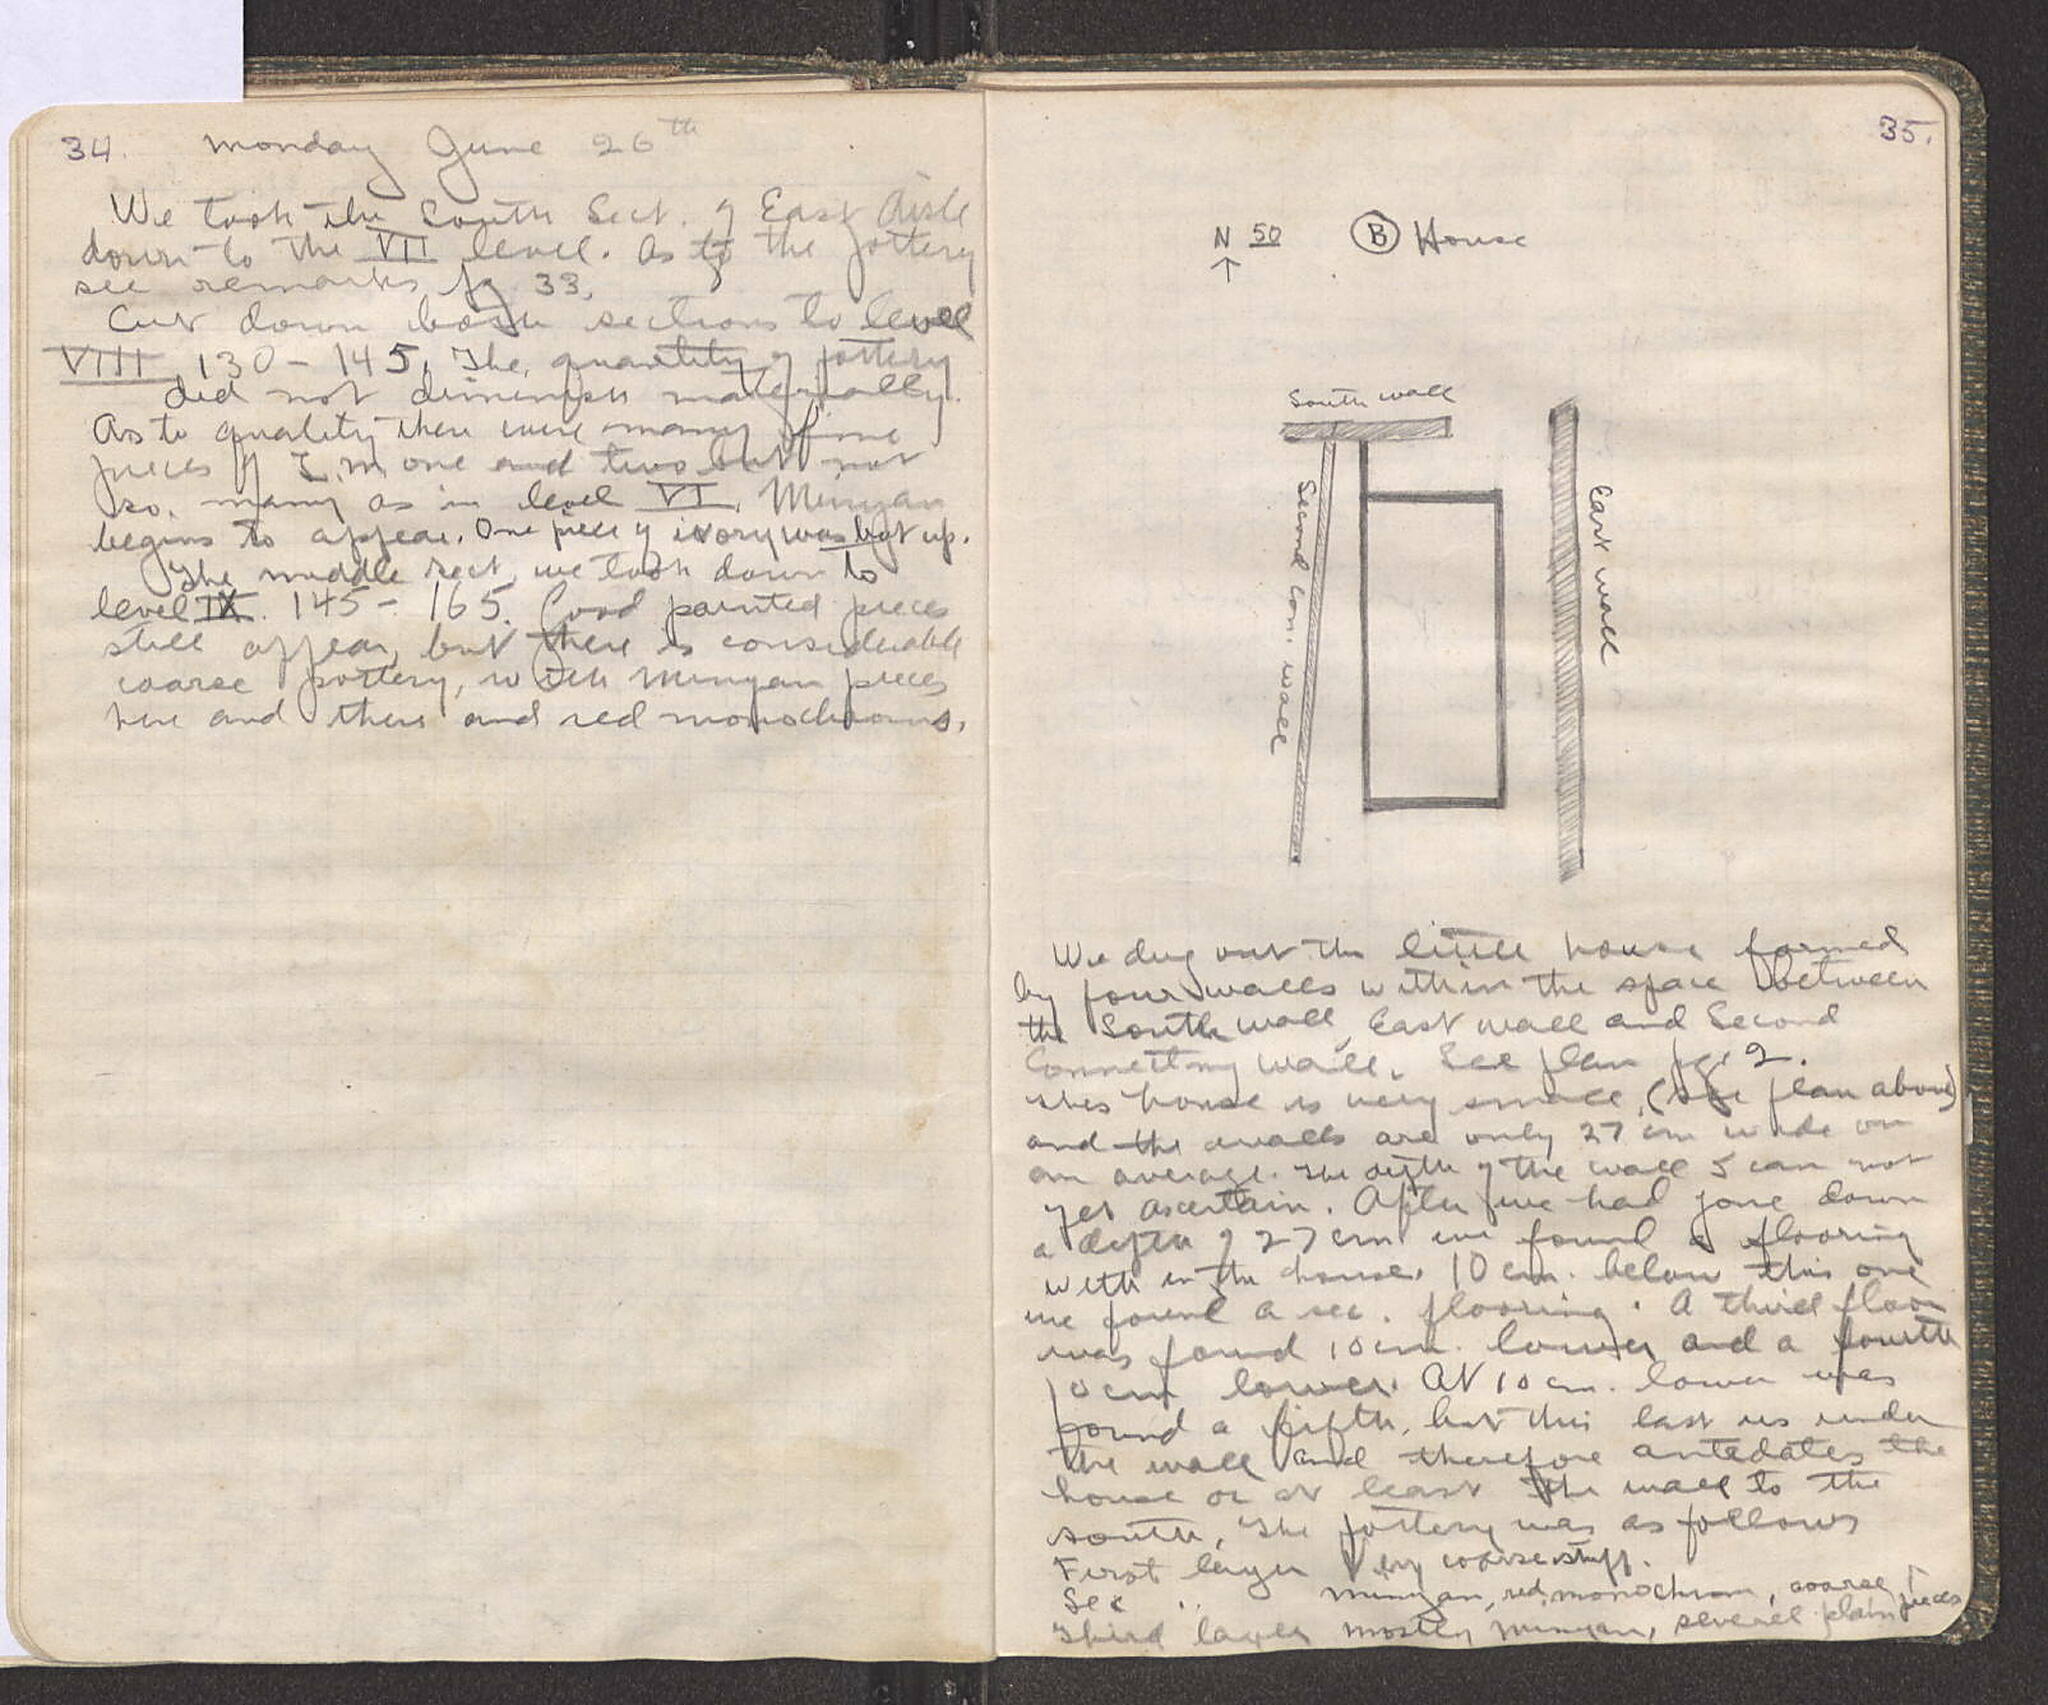 34. Monday June 26th
We took the South Sect. of East Aisle
down to the VII level. As to the pottery
see remarks pg 33.
Cut down both sections to level
VIII, 130 - 145. The quantity of pottery
did not diminish materially.
As to quality there were many fine
pieces of L.M. one and two but not
so many as in level VI. Minyan
begins to appear. One piece of ivory was bot up.
The middle sect. we took down to
level IX. 145 - 165. Good painted pieces
still appear, but there is considerable
coarse pottery, with Minyan pieces
here and there and red monochrome.
35.
N 50 B House
↑
South wall
Second Con. wall
East wall
We dug out the little house formed
by four walls within the space between
the South wall, East wall and Second
Connecting wall. See plan pg. 2.
This house is very small, (see plan above)
and the walls are only 27 cm wide on
an average. The depth of the wall I can not
yet ascertain. After we had gone down
a depth of 27 cm we found a flooring
with in the house. 10 cm. below this one
we found a sec. flooring. A third floor
was found 10 cm. lower and a fourth
10 cm lower. At 10 cm. lower was
found a fifth, but this last is under
the wall and therefore antedates the
house or at least the wall to the
south. The pottery was as follows
First layer Very coarse stuff.
Sec " Minyan, red monochrom, coarse pieces
Third layer mostly Minyan, several plain